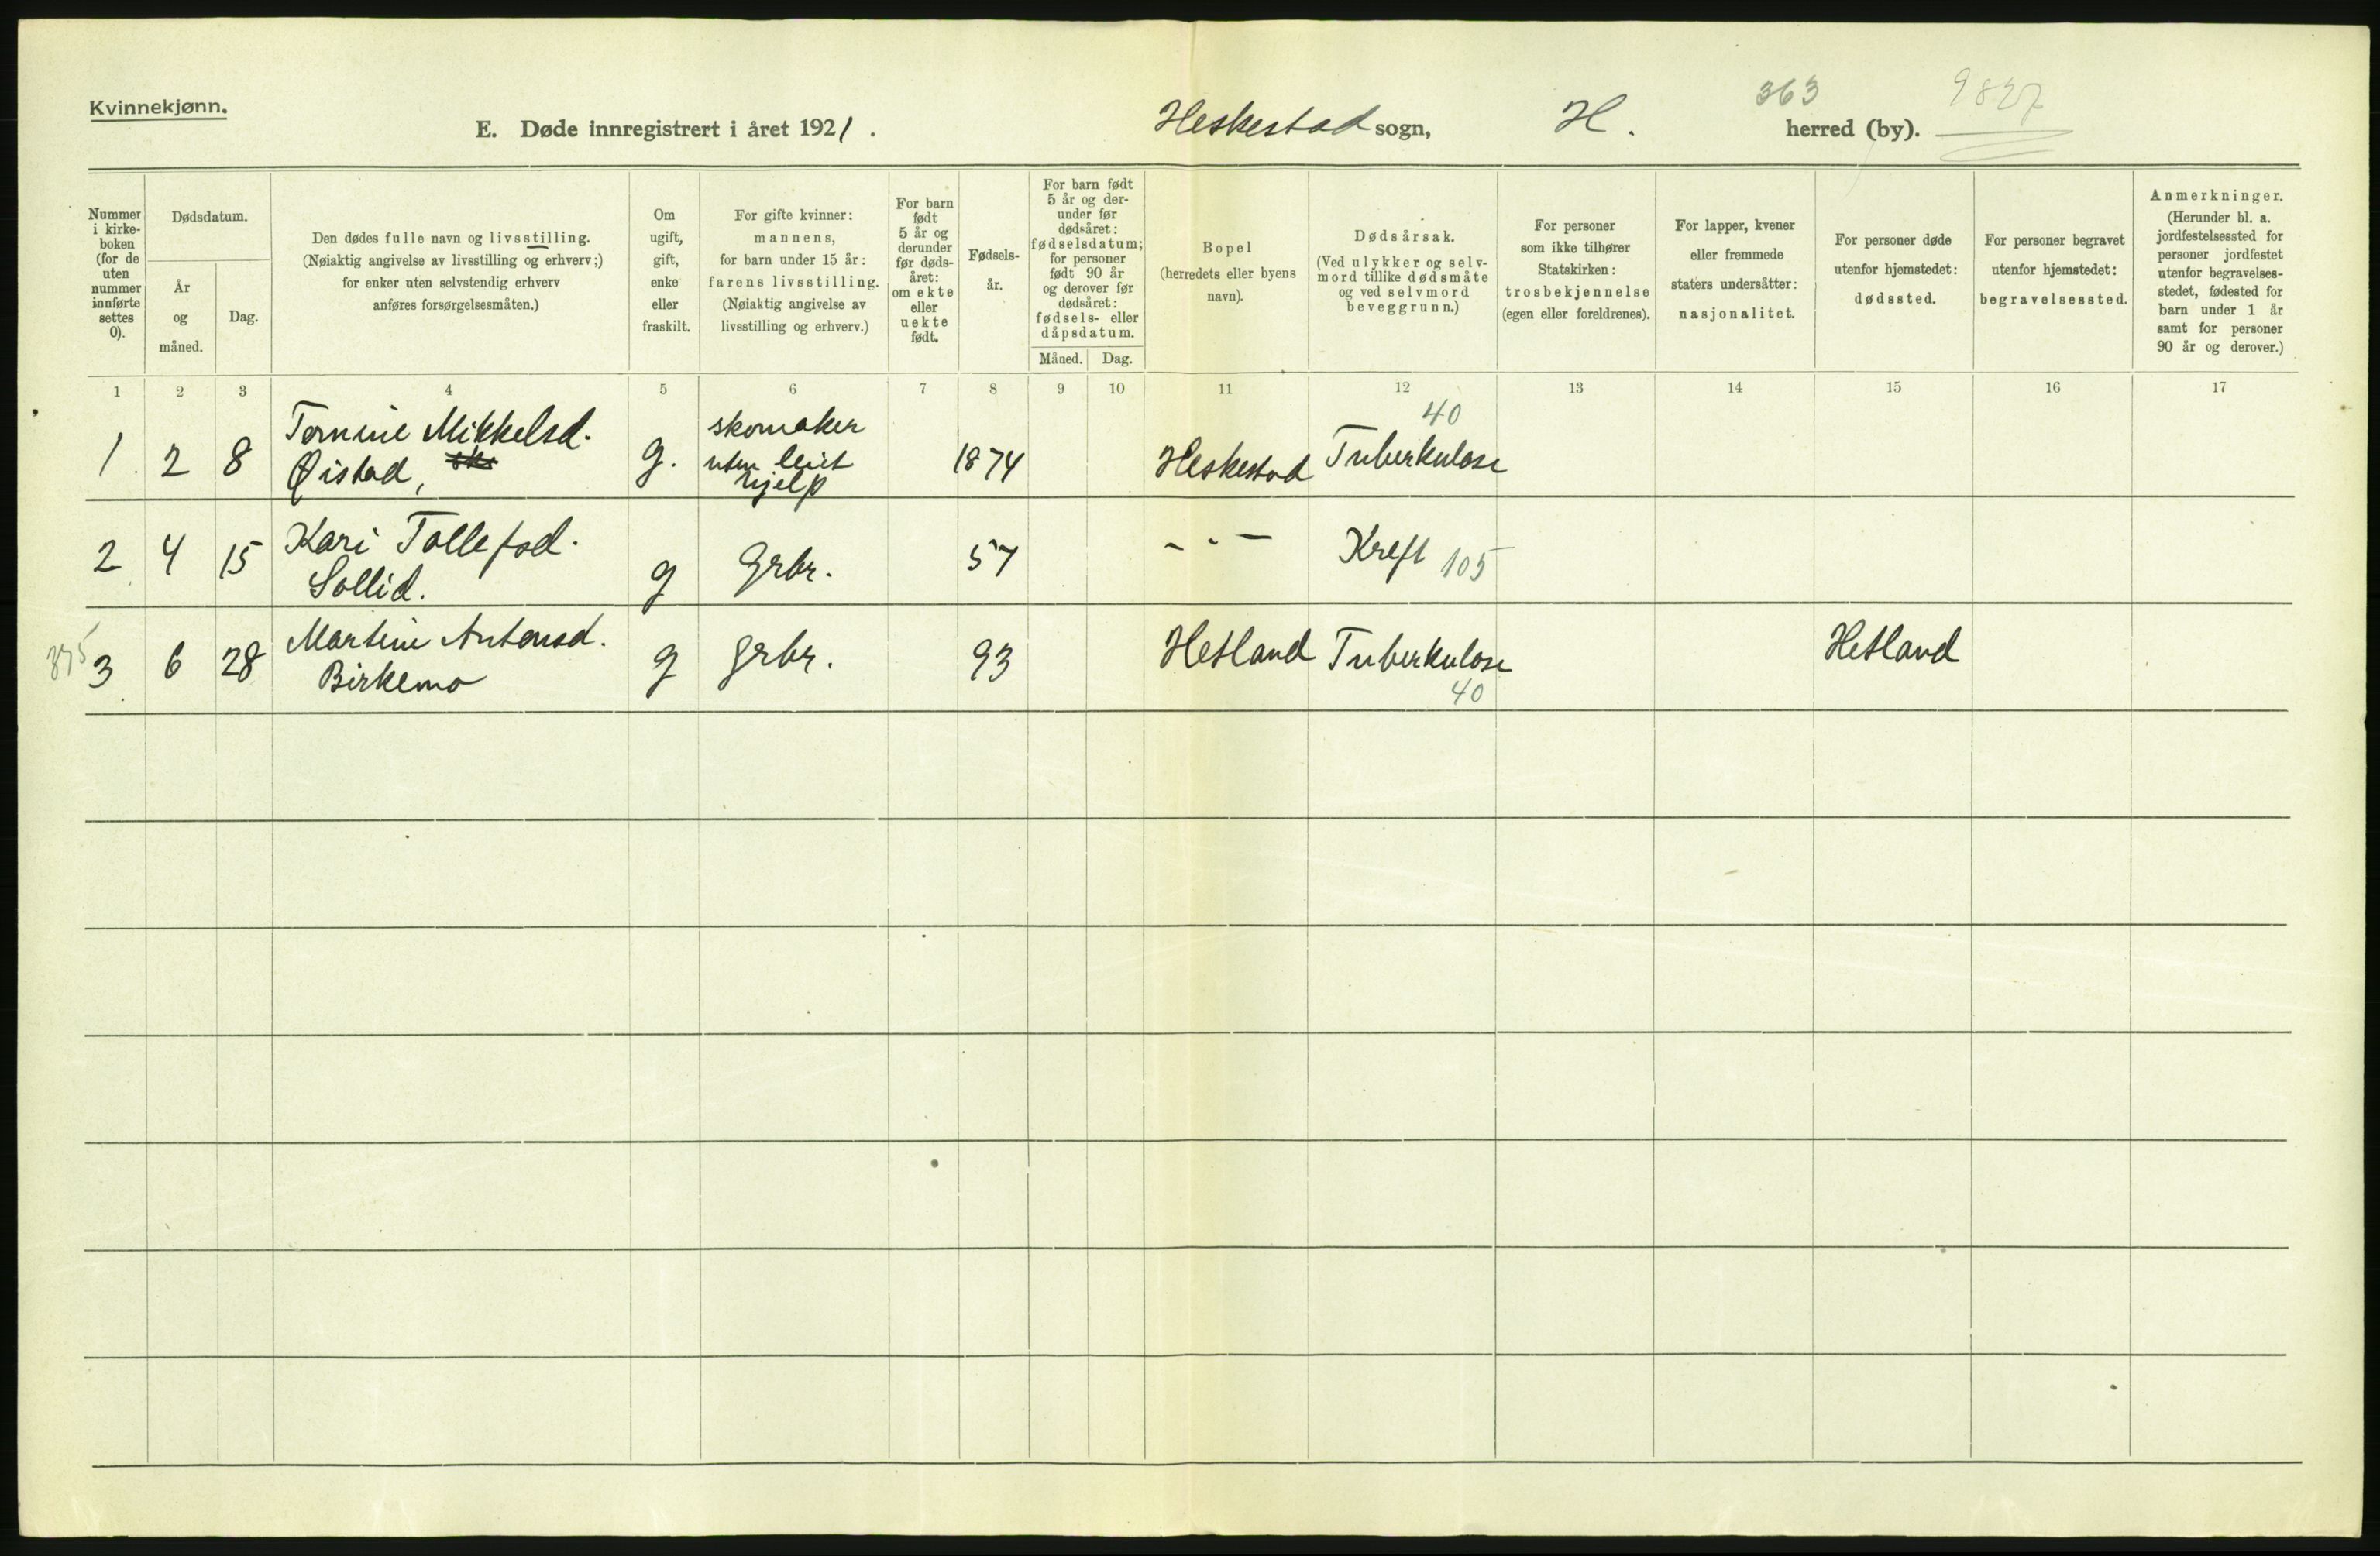 Kvinnekjønn.
E. Døde innregistrert i året 1921. Heskestad sogn, H. herred (by).
363
9827
Nummer i kirke-boken (for de uten nummer innførte settes 0).
Dødsdatum.
År og måned.
Dag.
Den dødes fulle navn og livsstilling.
(Nøiaktig angivelse av livsstilling og erhverv;)
for enker uten selvstendig erhverv
anføres forsørgelsesmåten.)
Om
ugift,
gift,
enke
eller
fraskilt.
For gifte kvinner:
mannens,
for barn under 15 år:
farens livsstilling.
(Nøiaktig angivelse av
livsstilling og erhverv.)
For barn
født
5 år og
derunder
før døds-
året:
om ekte
eller
uekte
født.
Fødsels-
år.
For barn født
5 år og der-
under før
dødsåret:
fødselsdatum;
for personer
født 90 år
og derover før
dødsåret:
fødsels- eller
dåpsdatum.
Måned. Dag.
Bopel
(herredets eller byens
navn).
Dødsårsak.
(Ved ulykker og selv-
mord tillike dødsmåte
og ved selvmord
beveggrunn.)
For personer
som ikke tilhører
Statskirken:
trosbekjennelse
(egen eller foreldrenes).
For lapper, kvener
eller fremmede
staters undersåtter:
nasjonalitet.
For personer døde
utenfor hjemstedet:
dødssted.
For personer begravet
utenfor hjemstedet:
begravelsessted.
Anmerkninger.
(Herunder bl. a.
jordfestelsessted for
personer jordfestet
utenfor begravelses-
stedet, fødested for
barn under 1 år
samt for personer
90 år og derover.)
1 2 3 4 5 6 7 8 9 10 11 12 13 14 15 16 17
1 2 8 Tomine Mikkelsd. Øistad, g. skomaker uten leiet hjelp 1874 Heskestad Tuberkulose 40
2 4 15 Kari Tollefsd. Sollid. g Grbr. 57 - " - Kreft 105
375
3 6 28 Martine Antonsd. Birkemo g grbr. 93 Hetland Tuberkulose 40 Hetland